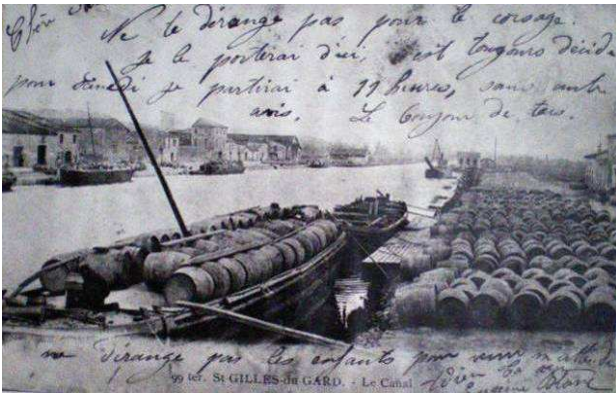 Ne te dérange pas pour le corsage.
je le porterai d'ici, c'est toujours décidé
pour je partirai à 11 heures, sans autre
avis. Le bonjour de tous.
ne dérange pas les enfants pour venir
99 ter. St GILLES-du GARD. - Le Canal